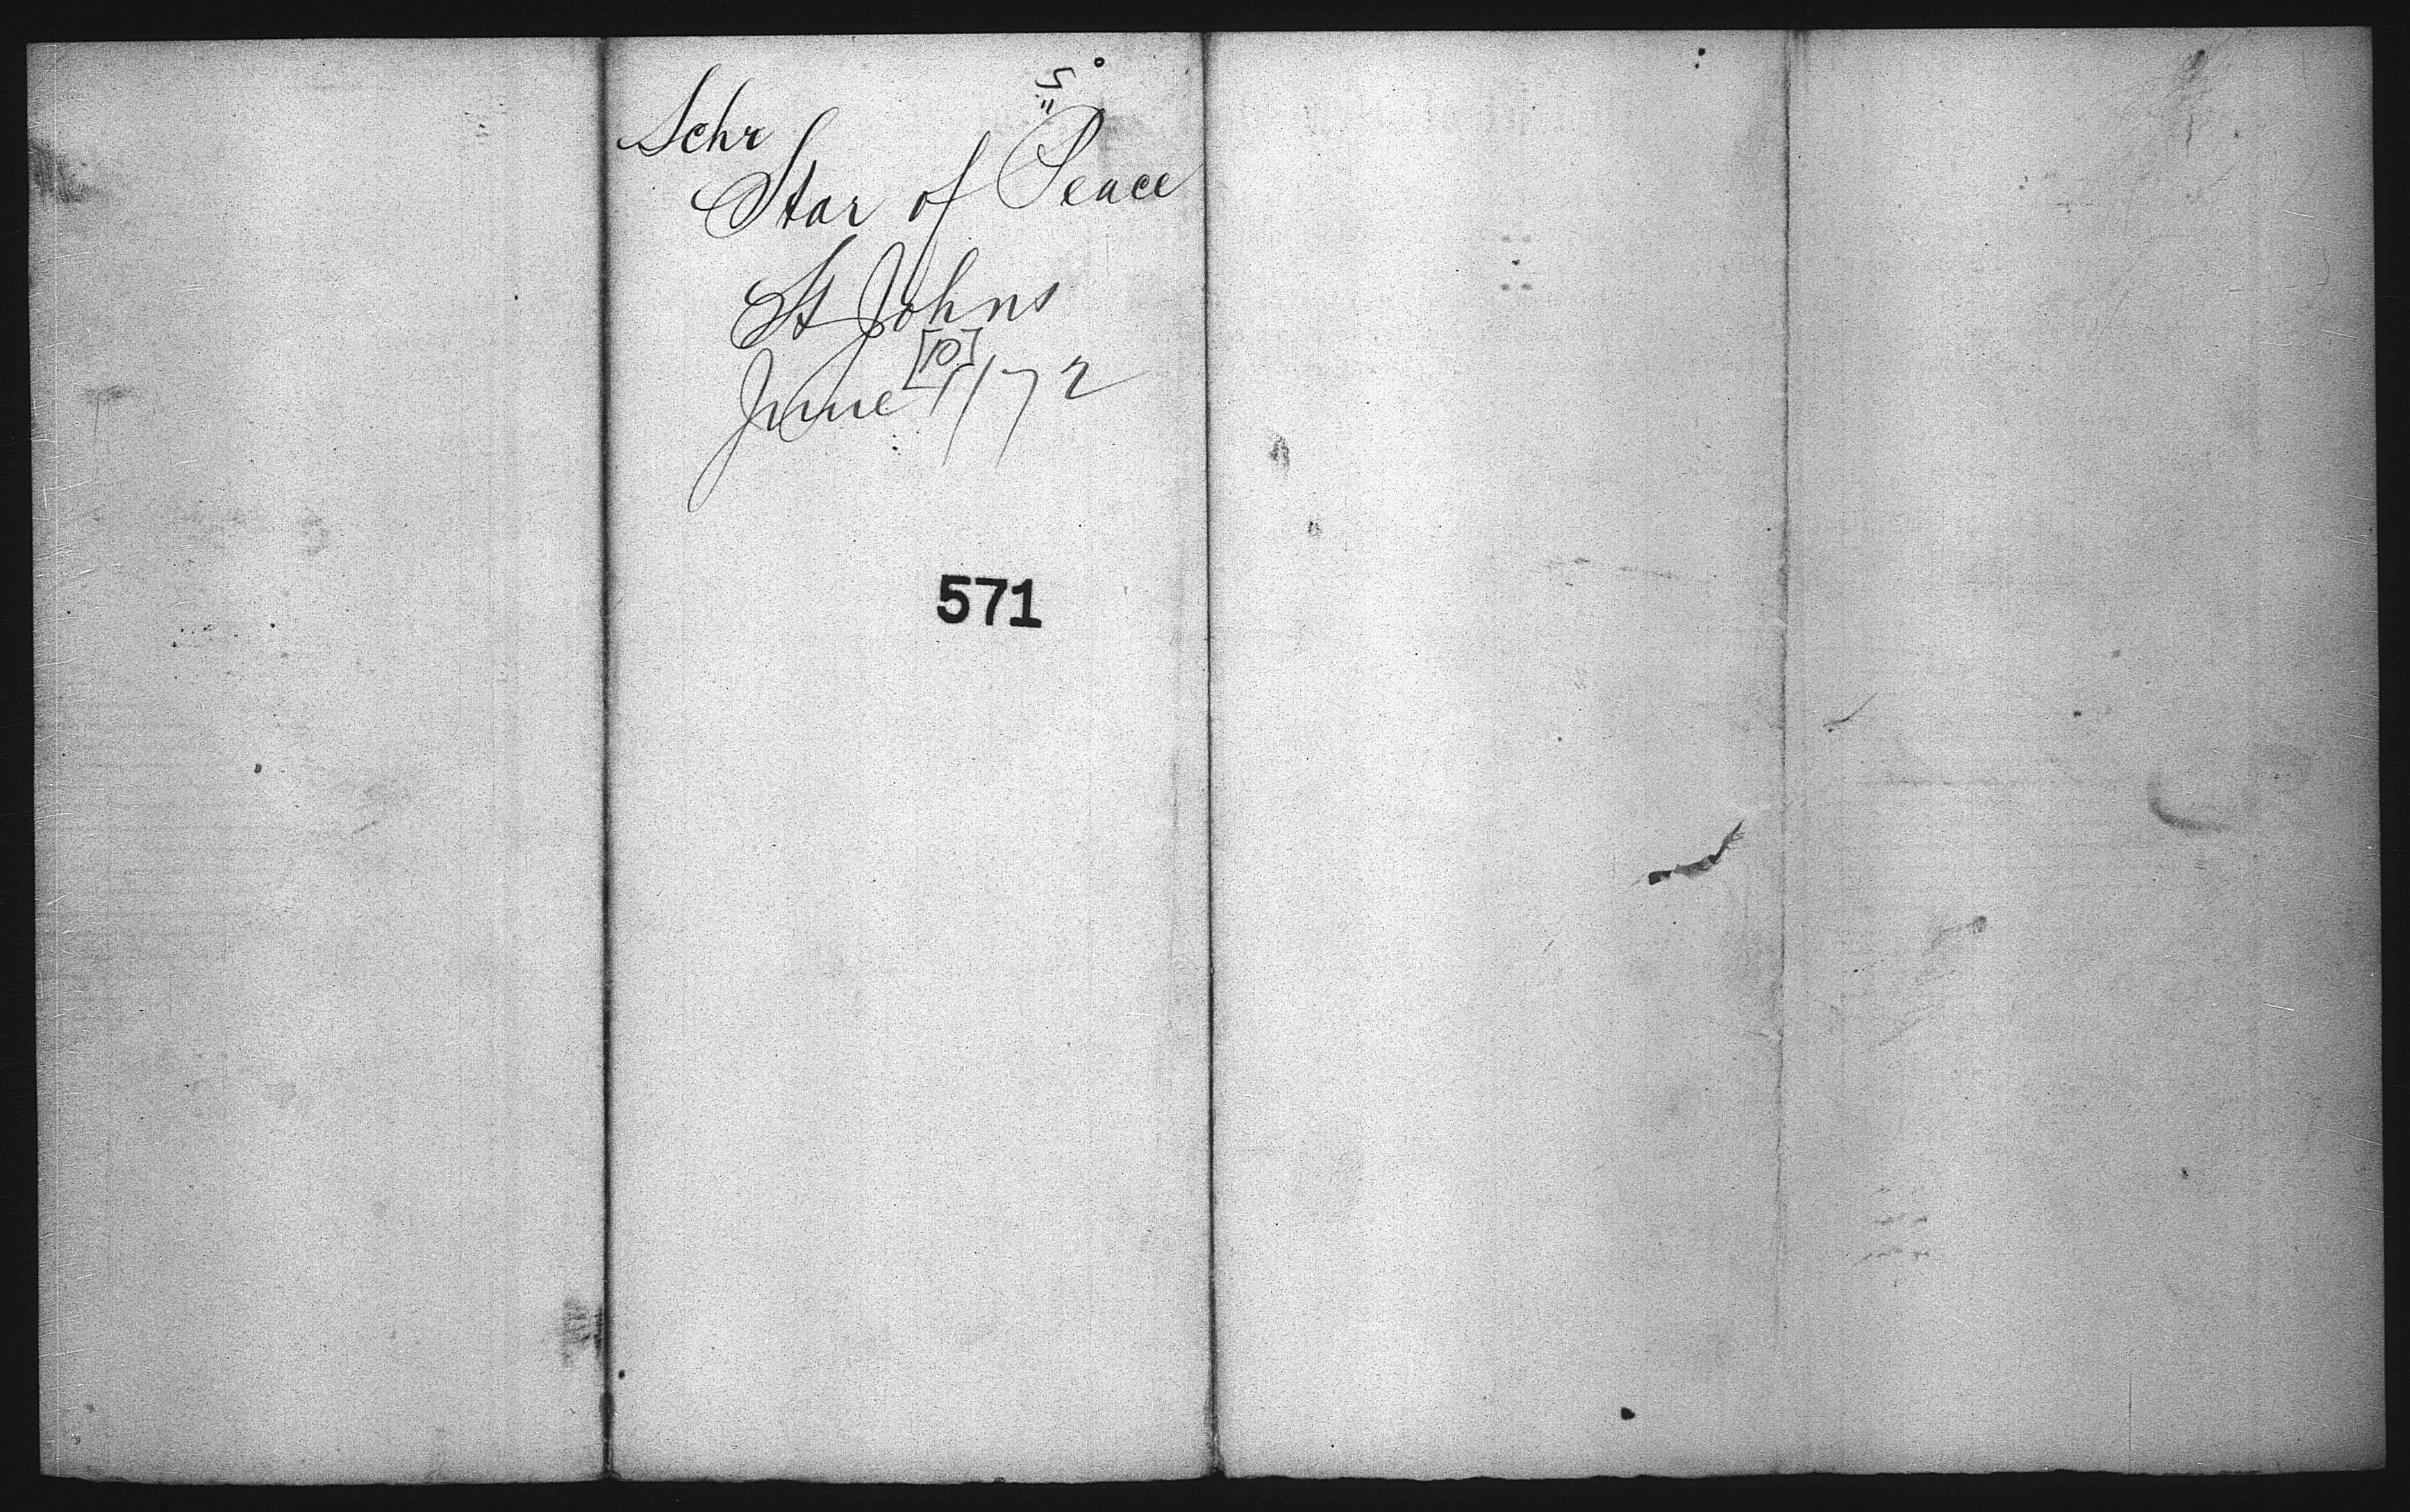 Schr
Star of Peace
St Johns
[10]
June 1/72
571